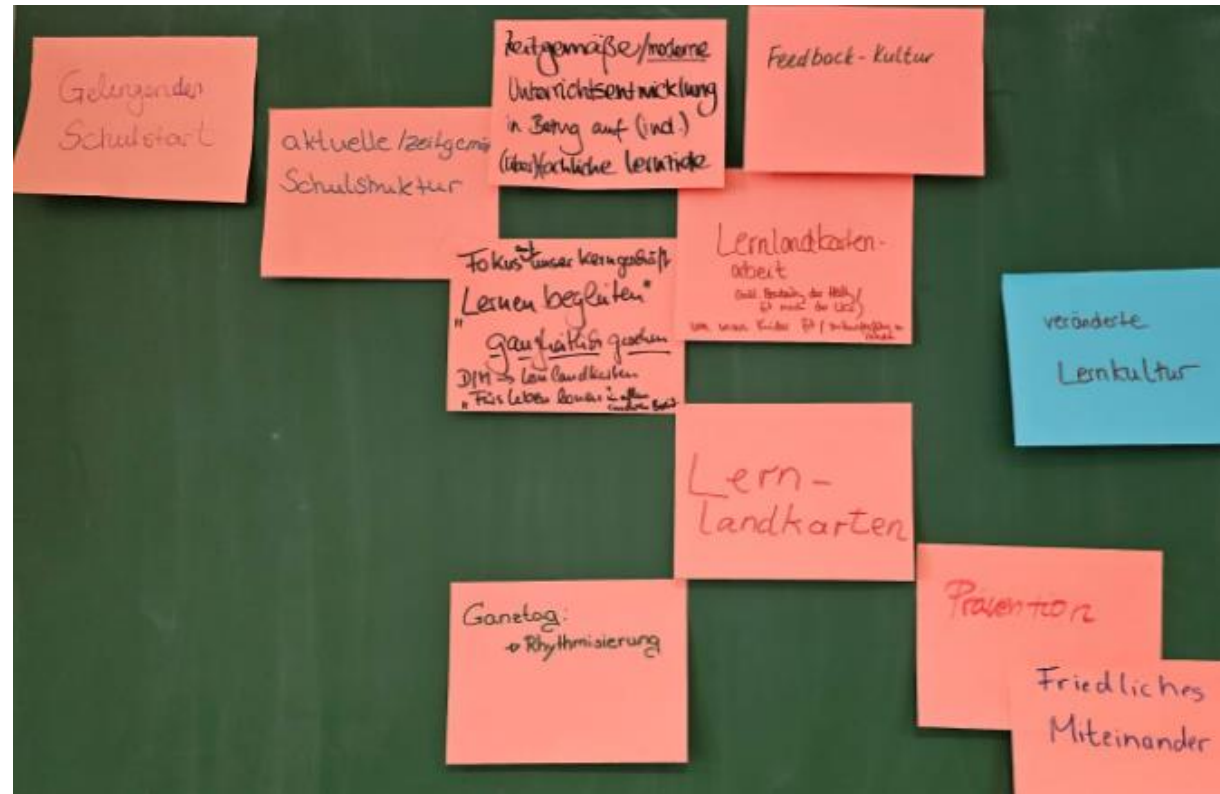 Gelingender
Schulstart
aktuelle/zeitgemä
Schulstruktur
Zeitgemäße/moderne
Unterrichtsentwicklung
in Bezug auf (ind.)
(über)fachliche Lernziele
Feedback-Kultur
Fokus auf unser Kerngeschäft
"Lernen begleiten"
ganzheitlich gesehen
D/M => Lernlandkarten
"Fürs Leben lernen in allen
Lernlandkarten-
arbeit
um unsere Kinder fit / zu
veränderte
Lernkultur
Lern-
landkarten
Ganztag:
→ Rhythmisierung
Prävention
Friedliches
Miteinander